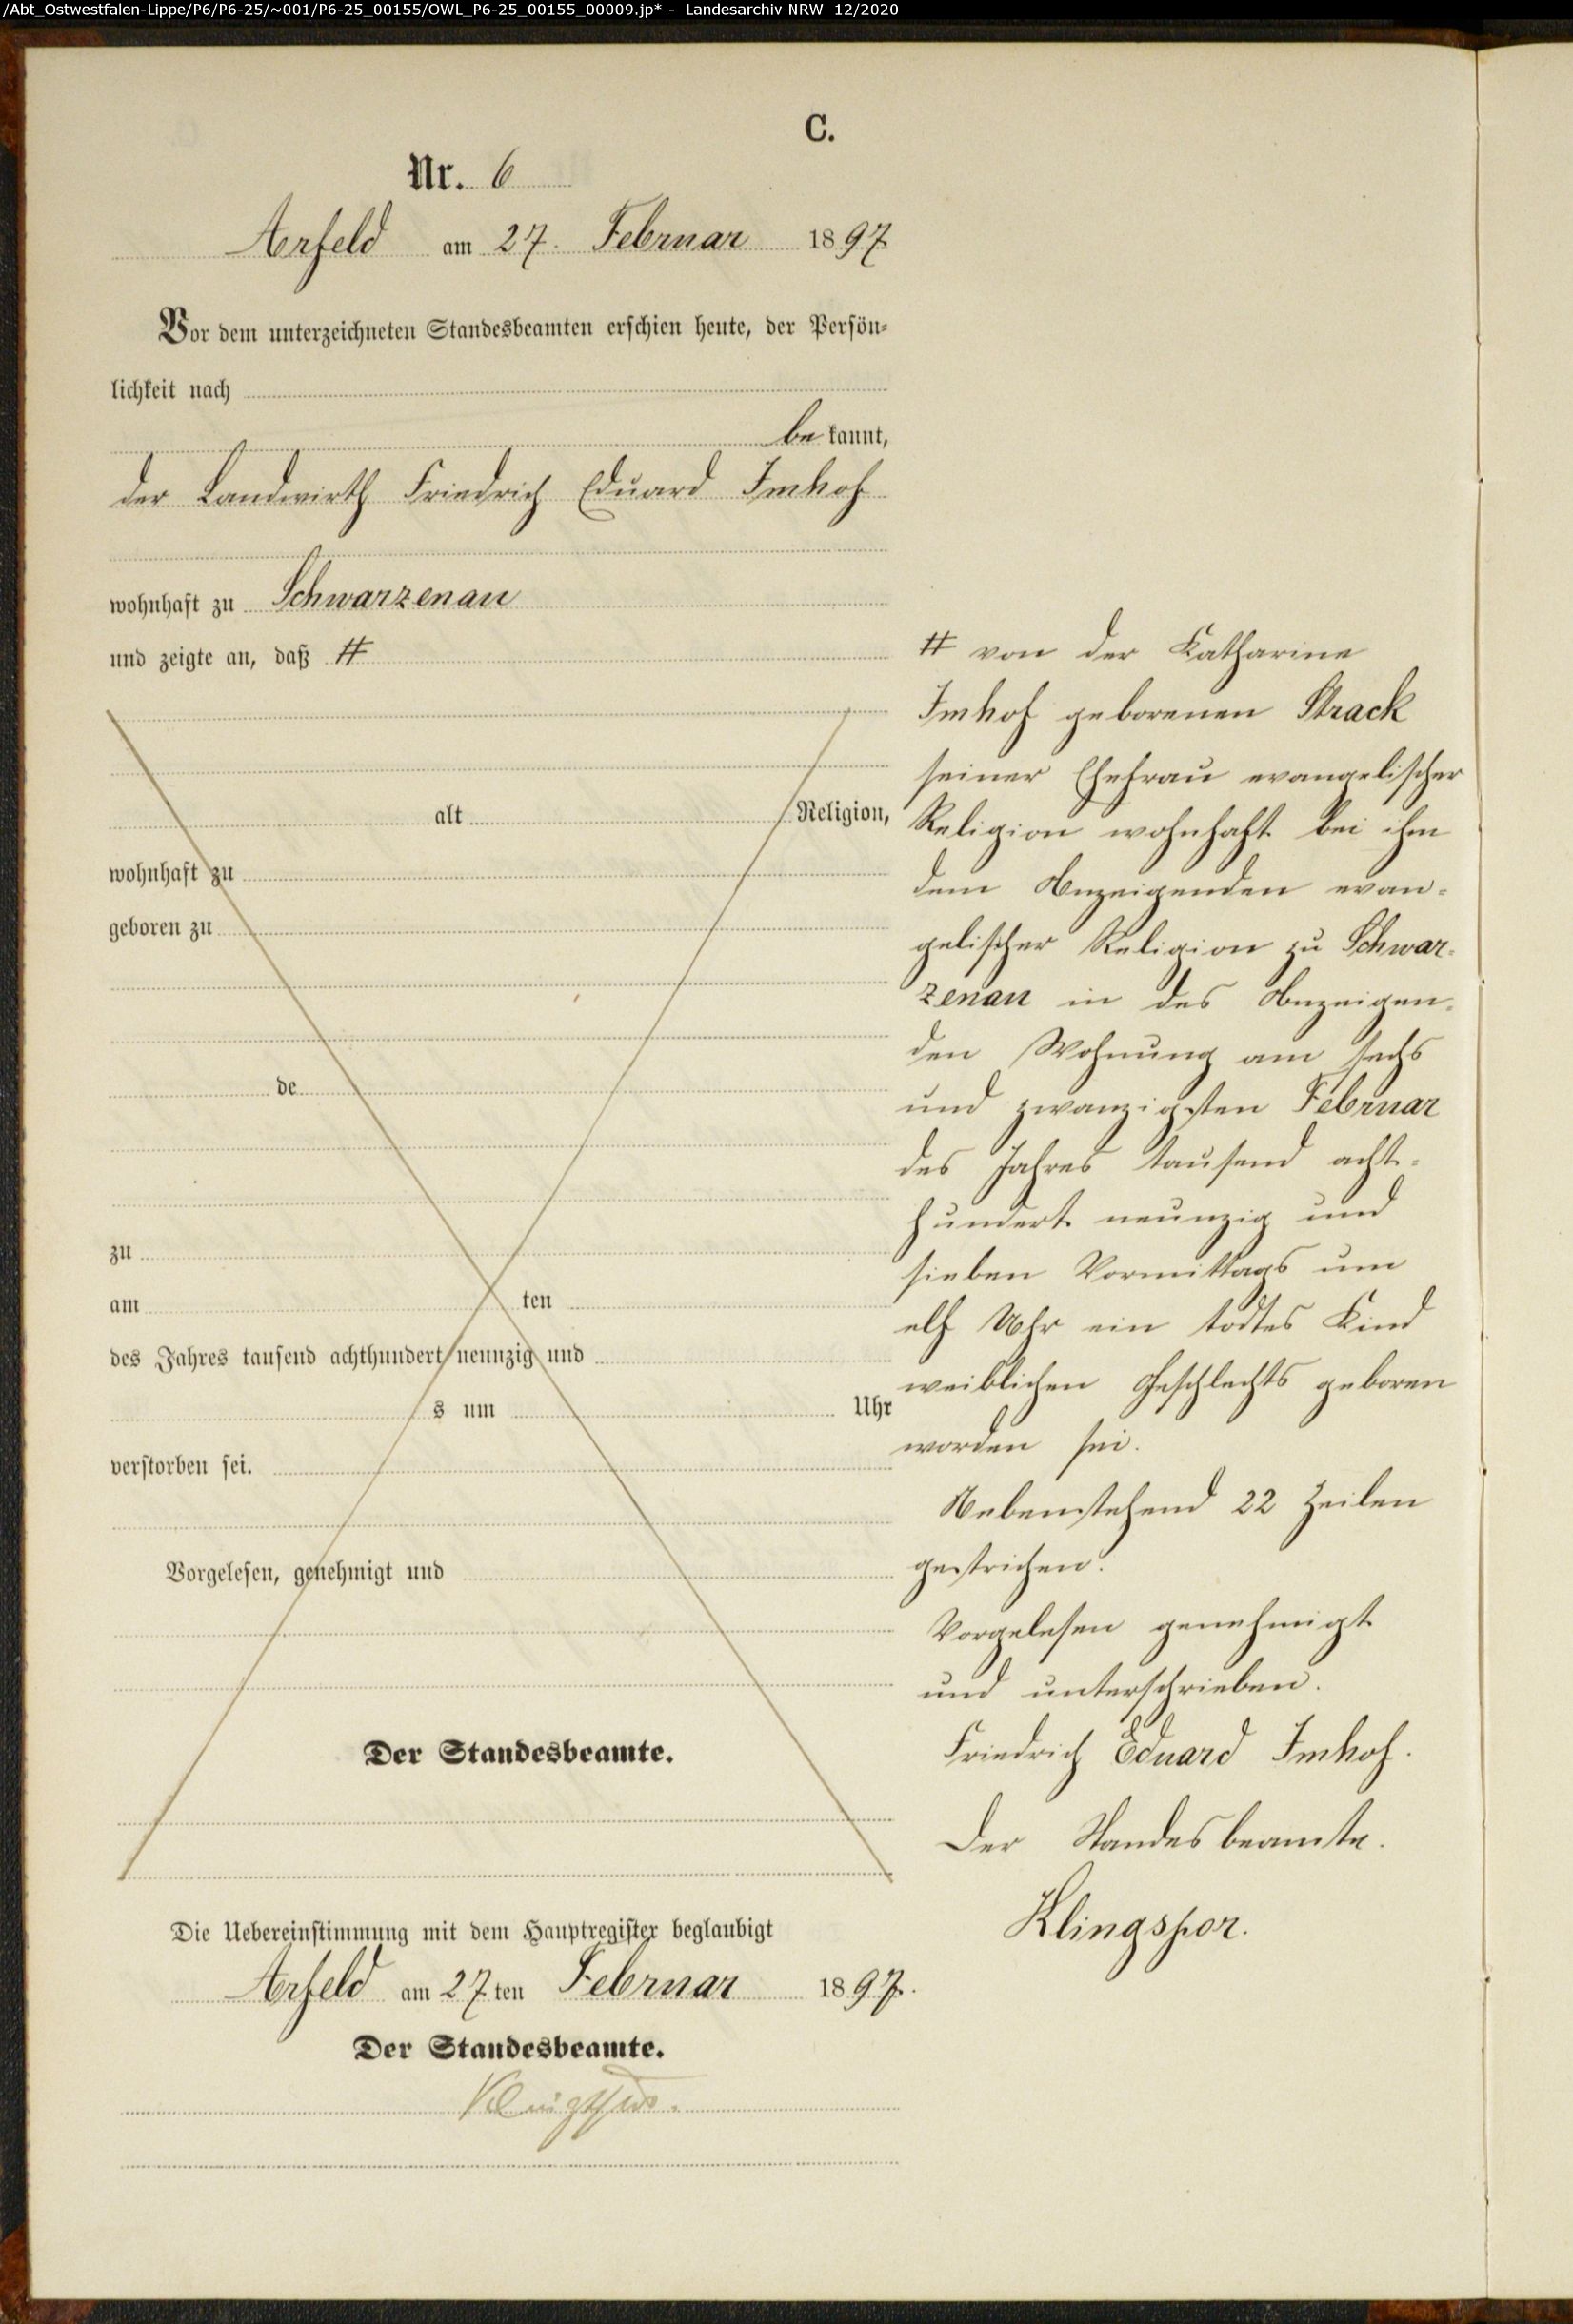 /Abt_Ostwestfalen-Lippe/P6/P6-25/~001/P6-25_00155/OWL_P6-25_00155_00009.jp* - Landesarchiv NRW 12/2020
C.
Nr. 6
Arfeld am 27. Februar 1897
Vor dem unterzeichneten Standesbeamten erschien heute, der Persön-
lichkeit nach
be kannt,
der Landwirth Friedrich Eduard Imhof
wohnhaft zu Schwarzenau
und zeigte an, daß #
alt Religion,
wohnhaft zu
geboren zu
de
zu
am ten
des Jahres tausend achthundert neunzig und
s um Uhr
verstorben sei.
Vorgelesen, genehmigt und
Der Standesbeamte.
# von der Katharine
Imhof geborenen Strack
seiner Ehefrau evangelischer
Religion wohnhaft bei ihm
dem Anzeigenden evan-
gelischer Religion zu Schwar-
zenau in des Anzeigen-
den Wohnung am sechs
und zwanzigsten Februar
des Jahres tausend acht-
hundert neunzig und
sieben Vormittags um
elf Uhr ein todtes Kind
weiblichen Geschlechts geboren
worden sei.
Nebenstehend 22 Zeilen
gestrichen.
Vorgelesen genehmigt
und unterschrieben.
Friedrich Eduard Imhof.
Der Standesbeamte.
Klingspor.
Die Uebereinstimmung mit dem Hauptregister beglaubigt
Arfeld am 27.ten Februar 1897.
Der Standesbeamte.
Klingspor.